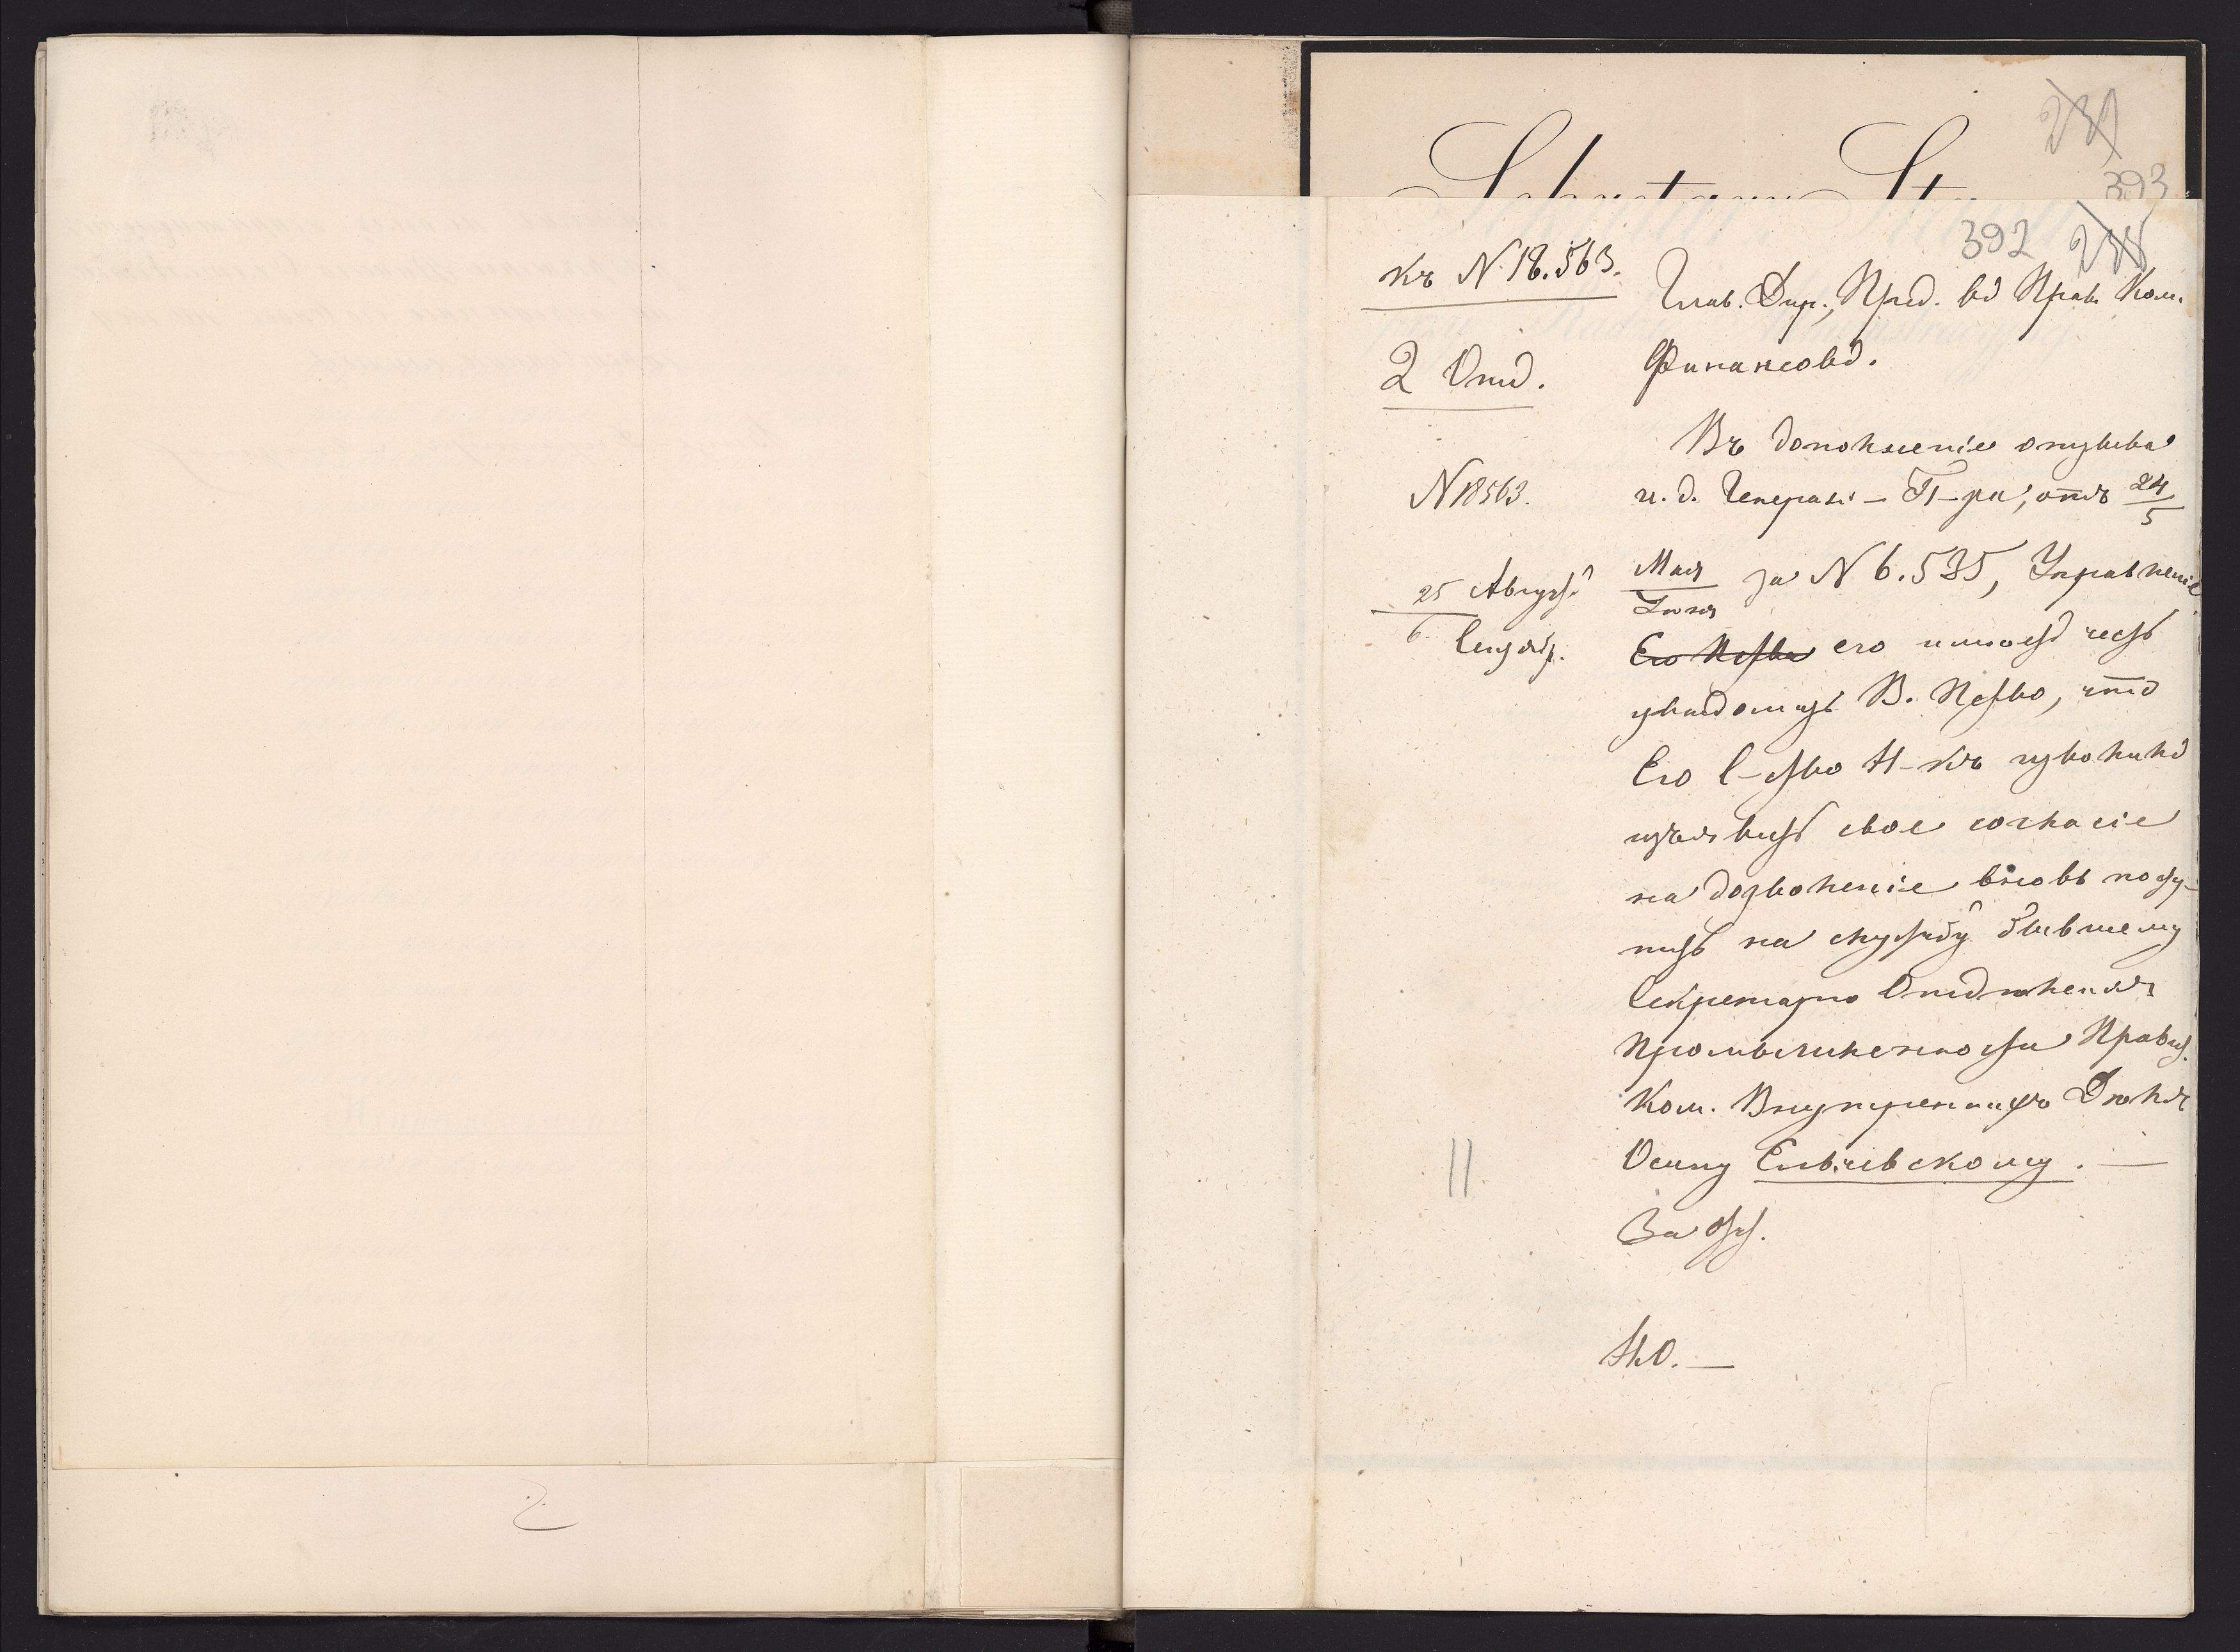 Sekretarz St
393
392
къ N. 18.563.
2 Отд.
N 18563.
25 Август.
6 Сентяб.
Глав. Дир., Пред. въ Прав. Ком.
Финансовъ.
Въ дополненіе отзыва
и. д. Генерал-П-ра, отъ 24/5
Мая/Іюня за N 6.535, Управленіе
Его Пр-ства его имѣетъ честь
увѣдомить В. Пр-ство, что
Его С-ство Н-къ изволилъ
изъявить свое согласіе
на дозволеніе вновь посту-
пить на службу бывшему
Секретарю Отдѣленія
Промышленности Правит.
Ком. Внутреннихъ Дѣлъ
Осипу
За отс.
Н.О.